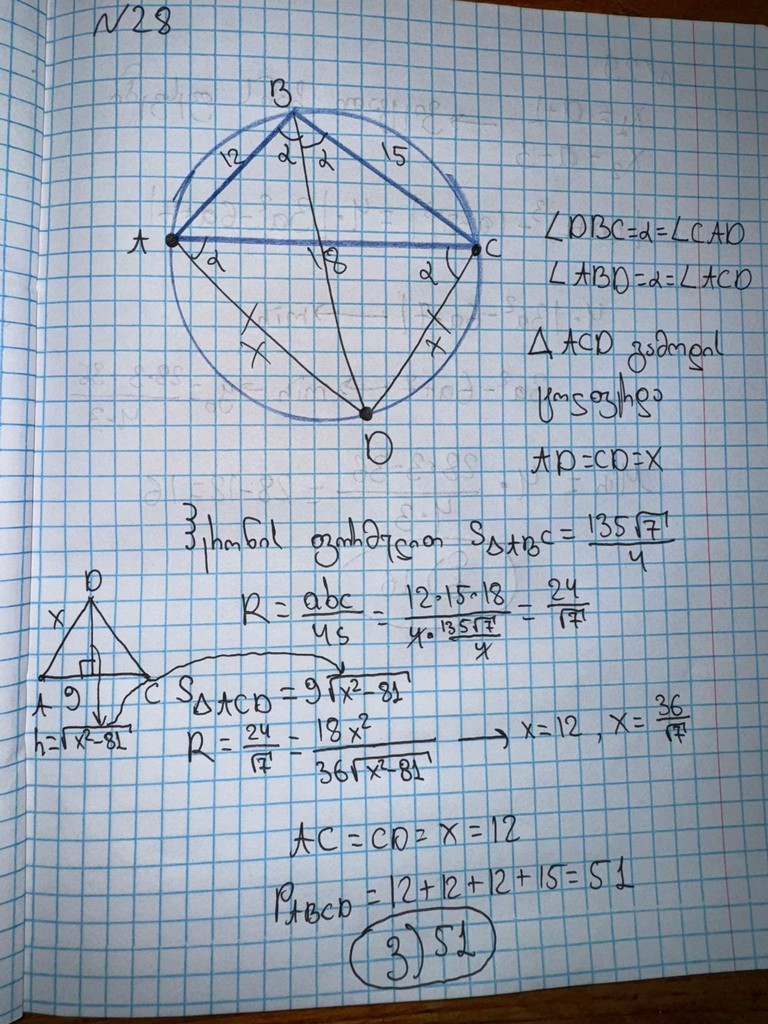 N28
B
12 α α 15
A α 18 α C
x x
D
∠DBC=α=∠CAD
∠ABD=α=∠ACD
△ACD გამოდის
ტოლფერდა
AD=CD=x
ჰერონის ფორმულით S△ABC = 135√7/4
R = abc/4S = 12·15·18/(4·135√7/4) = 24/√7
D
x
A 9 C
h=√x²-81
S△ACD = 9√x²-81
R = 24/√7 = 18x²/36√x²-81 → x=12, x=36/√7
AC = CD = x = 12
P_ABCD = 12+12+12+15=51
3) 51